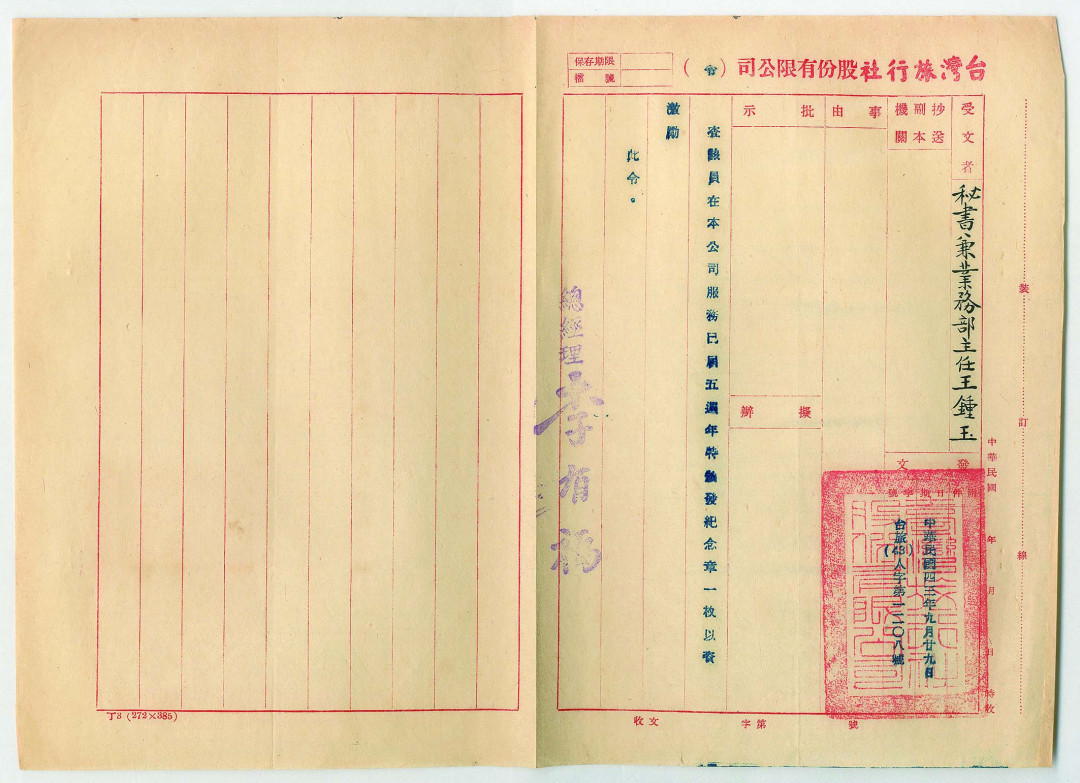 台灣旅行社股份有限公司（令）
保存期限
檔號
受文者
秘書兼業務部主任王鍾玉
抄送
副本
機關
事由
批示
擬辦
發文
中華民國四三年九月廿九日
台旅(43)人字第一二〇八號
查該員在本公司服務已屆五週年特頒發紀念章一枚以資
激勵
此令。
總經理李有福
裝訂線
中華民國 年 月 日 時收
收文 字第 號
丁3 (272×385)